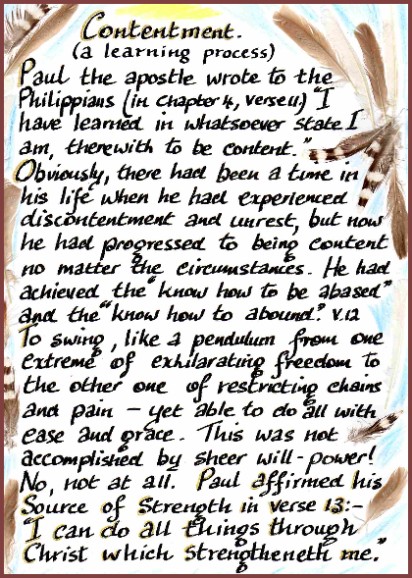 Contentment.
(a learning process)
Paul the apostle wrote to the
Philippians (in Chapter 4, verse 11) "I
have learned in whatsoever state I
am, therewith to be content."
Obviously, there had been a time in
his life when he had experienced
discontentment and unrest, but now
he had progressed to being content
no matter the circumstances. He had
achieved the "know how to be abased"
and the "know how to abound." v.12
To swing, like a pendulum from one
extreme of exhilarating freedom to
the other one of restricting chains
and pain – yet able to do all with
ease and grace. This was not
accomplished by sheer will-power!
No, not at all. Paul affirmed his
Source of Strength in verse 13:-
"I can do all things through
Christ which strengtheneth me."